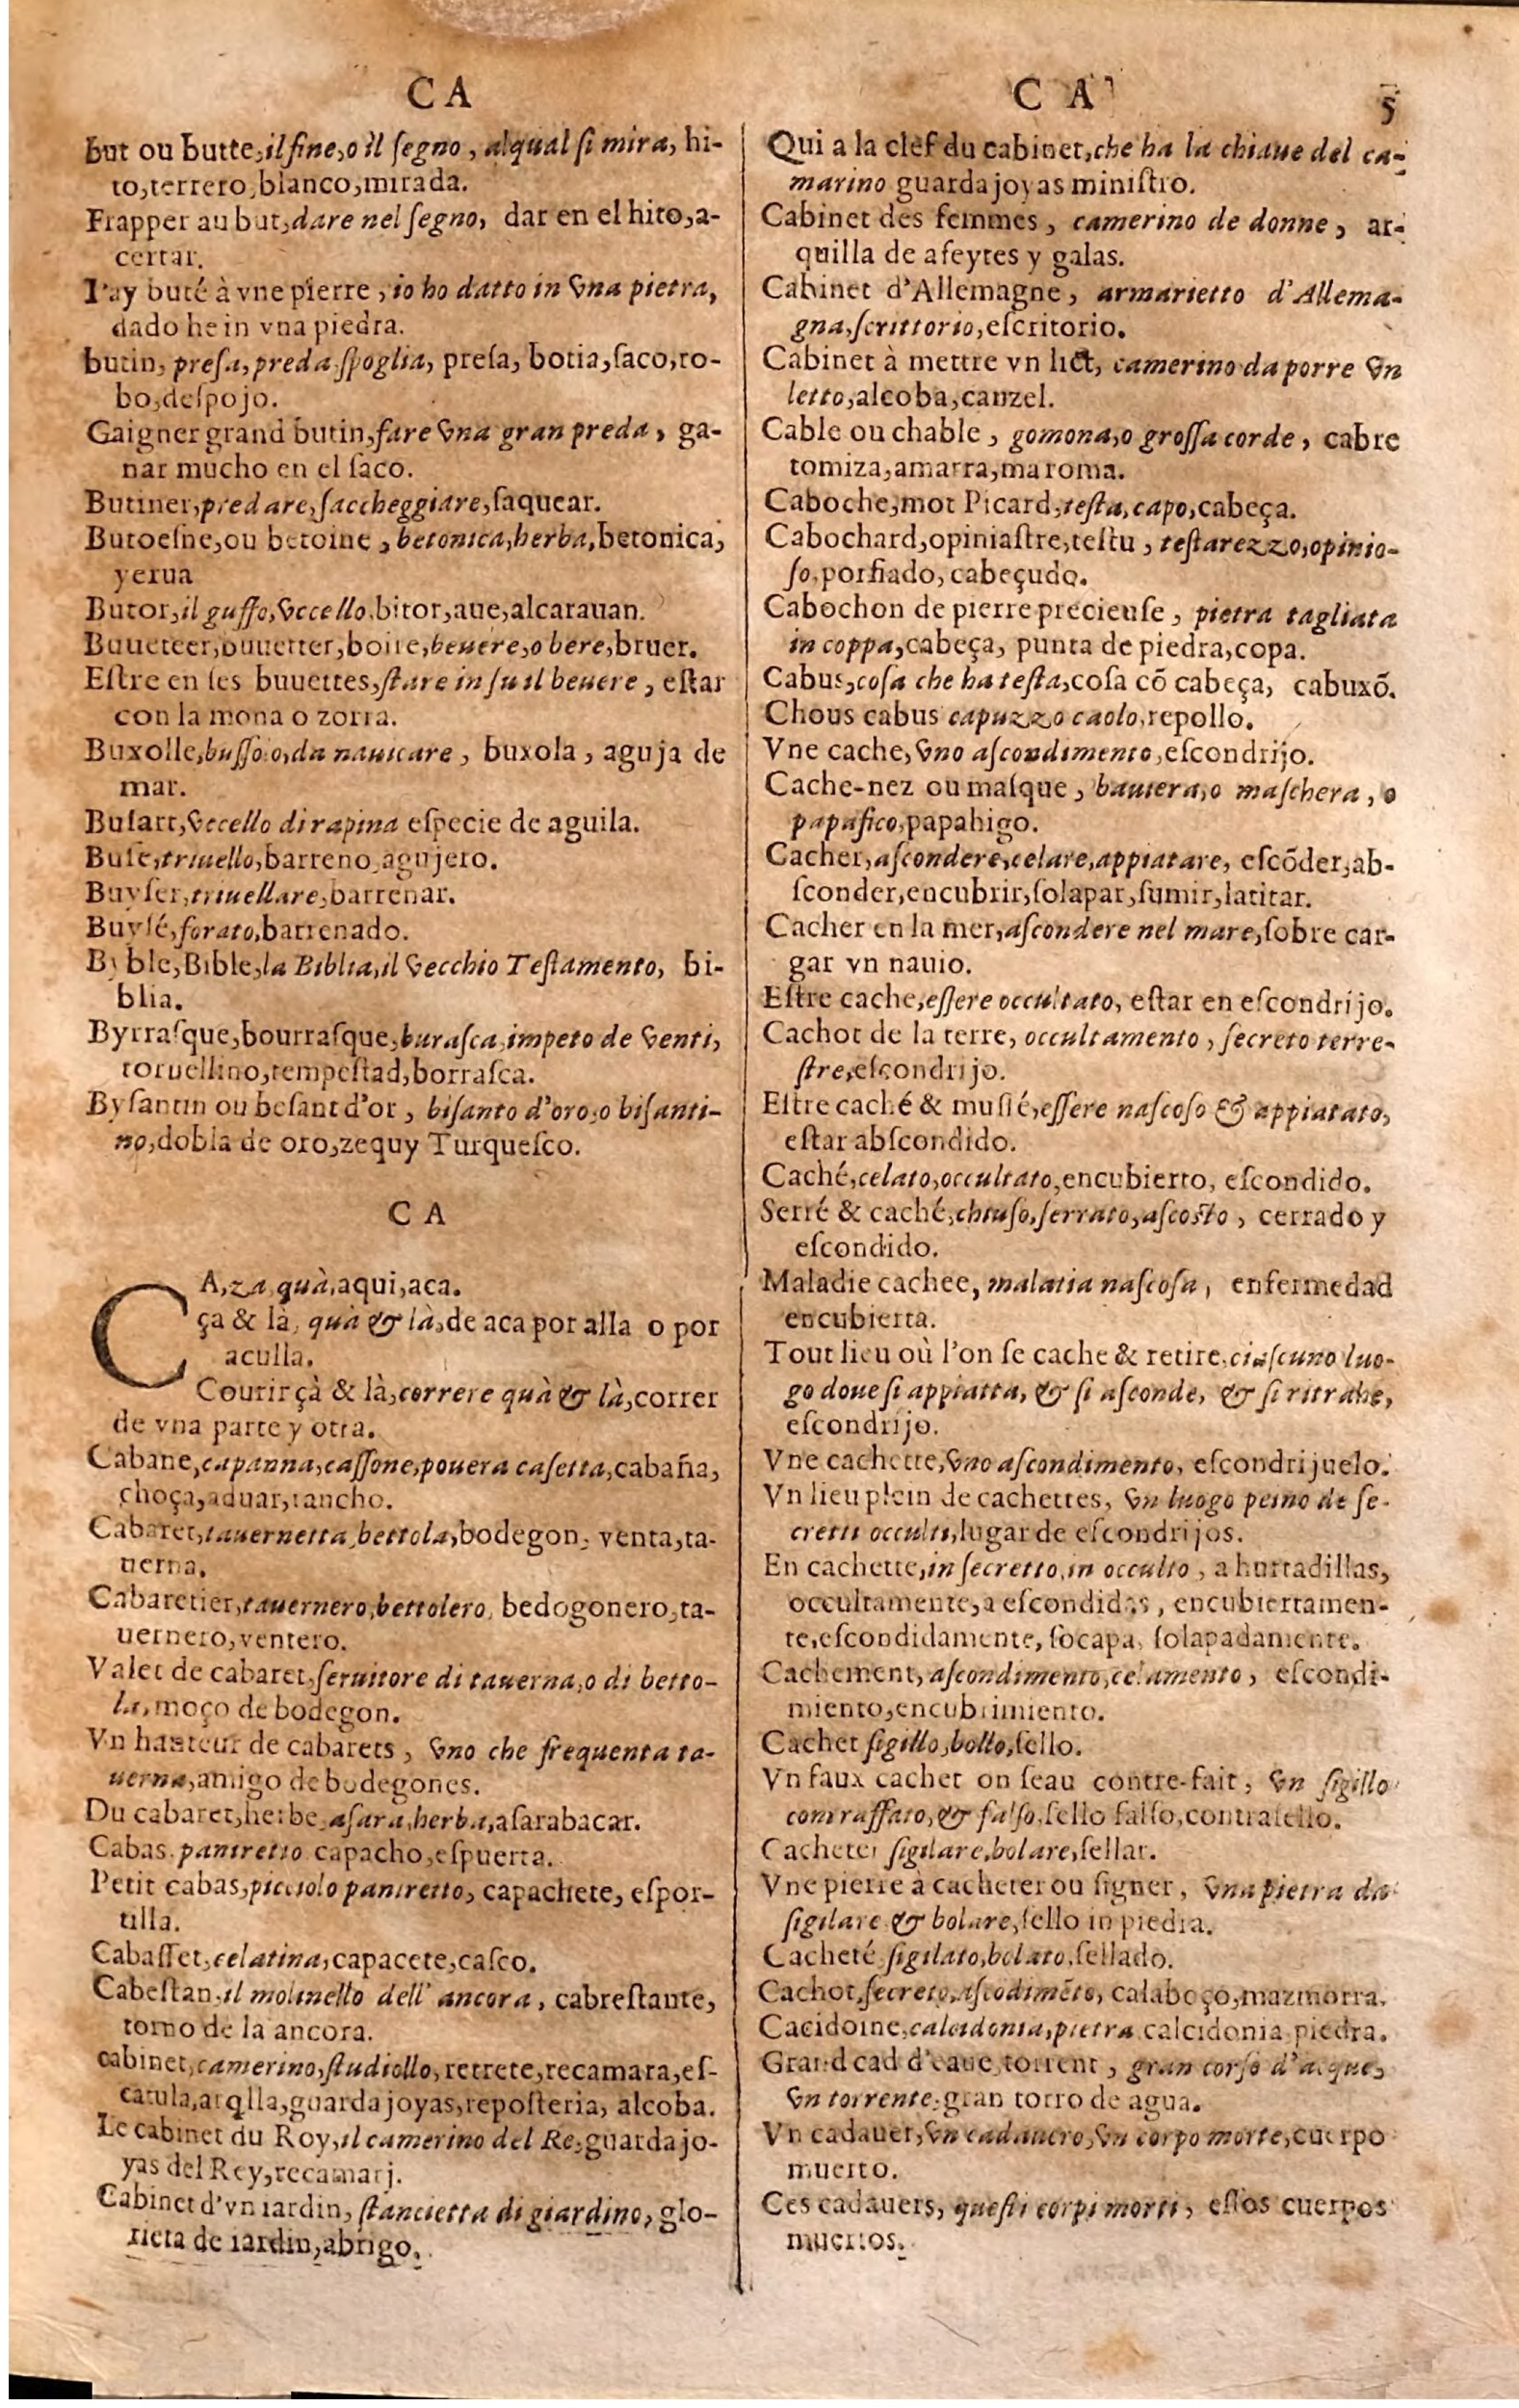 C A
but ou butte, il fine, o il ſegno, al qual ſi mira, hi-
to, terrero, blanco, mirada.
Frapper au but, dare nel ſegno, dar en el hito, a-
certar.
I'ay buté à vne pierre, io ho datto in vna pietra,
dado he in vna piedra.
butin, preſa, preda, ſpoglia, preſa, botia, ſaco, ro-
bo, deſpojo.
Gaigner grand butin, fare vna gran preda, ga-
nar mucho en el ſaco.
Butiner, predare, ſaccheggiare, ſaquear.
Butoeſne, ou betoine, betonica, herba, betonica,
yerua
Butor, il guffo, vccello, bitor, aue, alcarauan.
Buueteer, buuetter, boire, beuere, o bere, bruer.
Eſtre en ſes buuettes, ſtare in ſu il beuere, eſtar
con la mona o zorra.
Buxolle, buſſolo, da nauicare, buxola, aguja de
mar.
Buſart, vccello di rapina eſpecie de aguila.
Buſe, triuello, barreno, agujero.
Buyſer, triuellare, barrenar.
Buyſé, forato, barrenado.
Byble, Bible, la Biblia, il vecchio Teſtamento, bi-
blia.
Byrraſque, bourraſque, buraſca, impeto de venti,
toruellino, tempeſtad, borraſca.
Byſantin ou beſant d'or, biſanto d'oro, o biſanti-
no, dobla de oro, zequy Turqueſco.
C A
CA, za, quà, aqui, aca.
ça & là, quà & là, de aca por alla o por
aculla.
Courir çà & là, correre quà & là, correr
de vna parte y otra.
Cabane, capanna, caſſone, pouera caſetta, cabaña,
choça, aduar, rancho.
Cabaret, tauernetta, bettola, bodegon, venta, ta-
uerna.
Cabaretier, tauernero, bettolero, bedogonero, ta-
uernero, ventero.
Valet de cabaret, ſeruitore di tauerna, o di betto-
la, moço de bodegon.
Vn hanteur de cabarets, vno che frequenta ta-
uerna, amigo de bodegones.
Du cabaret, herbe, aſara, herba, aſarabacar.
Cabas, paniretto capacho, eſpuerta.
Petit cabas, picciolo paniretto, capachete, eſpor-
tilla.
Cabaſſet, celatina, capacete, caſco.
Cabeſtan, il molinello dell' ancora, cabreſtante,
torno de la ancora.
cabinet, camerino, ſtudiollo, retrete, recamara, eſ-
catula, arq̃lla, guarda joyas, repoſteria, alcoba.
Le cabinet du Roy, il camerino del Re, guarda jo-
yas del Rey, recamarj.
Cabinet d'vn iardin, ſtancietta di giardino, glo-
rieta de iardin, abrigo.
C A 5
Qui a la clef du cabinet, che ha la chiaue del ca-
marino guarda joyas miniſtro.
Cabinet des femmes, camerino de donne, ar-
quilla de afeytes y galas.
Cabinet d'Allemagne, armarietto d'Allema-
gna, ſcrittorio, eſcritorio.
Cabinet à mettre vn lict, camerino da porre vn
letto, alcoba, canzel.
Cable ou chable, gomona, o groſſa corde, cabre
tomiza, amarra, maroma.
Caboche, mot Picard, teſta, capo, cabeça.
Cabochard, opiniaſtre, teſtu, teſtarezzo, opinio-
ſo, porfiado, cabeçudo.
Cabochon de pierre precieuſe, pietra tagliata
in coppa, cabeça, punta de piedra, copa.
Cabus, coſa che ha teſta, coſa cõ cabeça, cabuxõ.
Chous cabus capuzzo caolo, repollo.
Vne cache, vno aſcondimento, eſcondrijo.
Cache-nez ou maſque, bautera, o maſchera, o
papafico, papahigo.
Cacher, aſcondere, celare, appiatare, eſcõder, ab-
ſconder, encubrir, ſolapar, ſumir, latitar.
Cacher en la mer, aſcondere nel mare, ſobre car-
gar vn nauio.
Eſtre cache, eſſere occultato, eſtar en eſcondrijo.
Cachot de la terre, occultamento, ſecreto terre-
ſtre, eſcondrijo.
Eſtre caché & muſſé, eſſere naſcoſo & appiatato,
eſtar abſcondido.
Caché, celato, occultato, encubierto, eſcondido.
Serré & caché, chiuſo, ſerrato, aſcoſto, cerrado y
eſcondido.
Maladie cachee, malatia naſcoſa, enfermedad
encubierta.
Tout lieu où l'on ſe cache & retire, ciaſcuno luo-
go doue ſi appiatta, & ſi aſconde, & ſi ritrahe,
eſcondrijo.
Vne cachette, vno aſcondimento, eſcondrijuelo.
Vn lieu plein de cachettes, vn luogo peino de ſe-
cretti occulti, lugar de eſcondrijos.
En cachette, in ſecretto, in occulto, a hurtadillas,
occultamente, a eſcondidas, encubiertamen-
te, eſcondidamente, ſocapa, ſolapadamente.
Cachement, aſcondimento, celamento, eſcondi-
miento, encubrimiento.
Cachet ſigillo, bollo, ſello.
Vn faux cachet on ſeau contre-fait, vn ſigillo
contraffato, & falſo, ſello falſo, contraſello.
Cacheter ſigilare, bolare, ſellar.
Vne pierre à cacheter ou ſigner, vna pietra da
ſigilare & bolare, ſello in piedra.
Cacheté ſigilato, bolato, ſellado.
Cachot, ſecreto, aſcodimẽto, calaboço, mazmorra.
Cacidoine, calcidonia, pietra calcidonia piedra.
Grand cad d'eaue, torrent, gran corſo d'acque,
vn torrente, gran torro de agua.
Vn cadauer, vn cadauero, vn corpo morte, cuerpo
muerto.
Ces cadauers, queſti corpi morti, eſſos cuerpos
muertos.